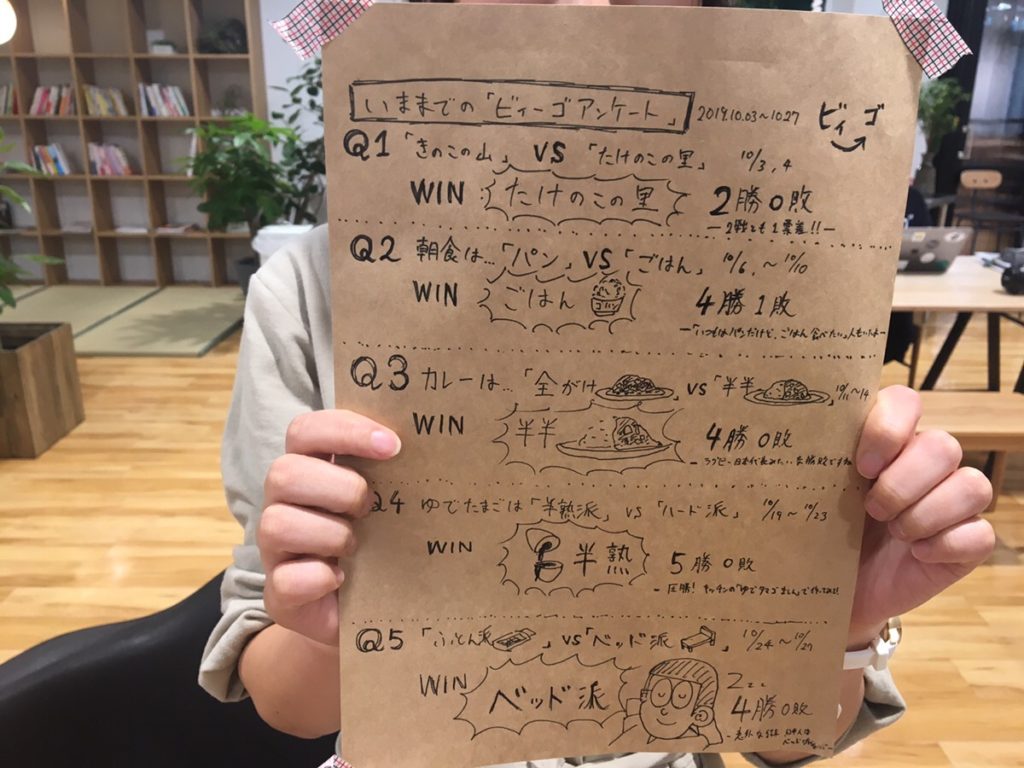 いままでの「ビィーゴアンケート」 2019.10.03〜10.27 ビィーゴ
Q1 「きのこの山」 VS 「たけのこの里」 10/3,4
WIN たけのこの里 2勝0敗
ー2戦とも1票差!!ー
Q2 朝食は…「パン」VS「ごはん」 10/6,〜10/10
WIN ごはん 4勝1敗
ー「いつもはパンだけど、ごはん食べたい」人もいたよー
Q3 カレーは…「全がけ」VS「半半」 10/11〜14
WIN 半半 4勝0敗
- ラグビー日本代表みたい…全勝
Q4 ゆでたまごは「半熟派」 VS 「ハード派」 10/19〜10/23
WIN 半熟 5勝0敗
- 圧勝! キッチンの「ゆでタマゴ
Q5 「ふとん派」VS「ベッド派」 10/24〜10/27
WIN ベッド派 Zzz 4勝0敗